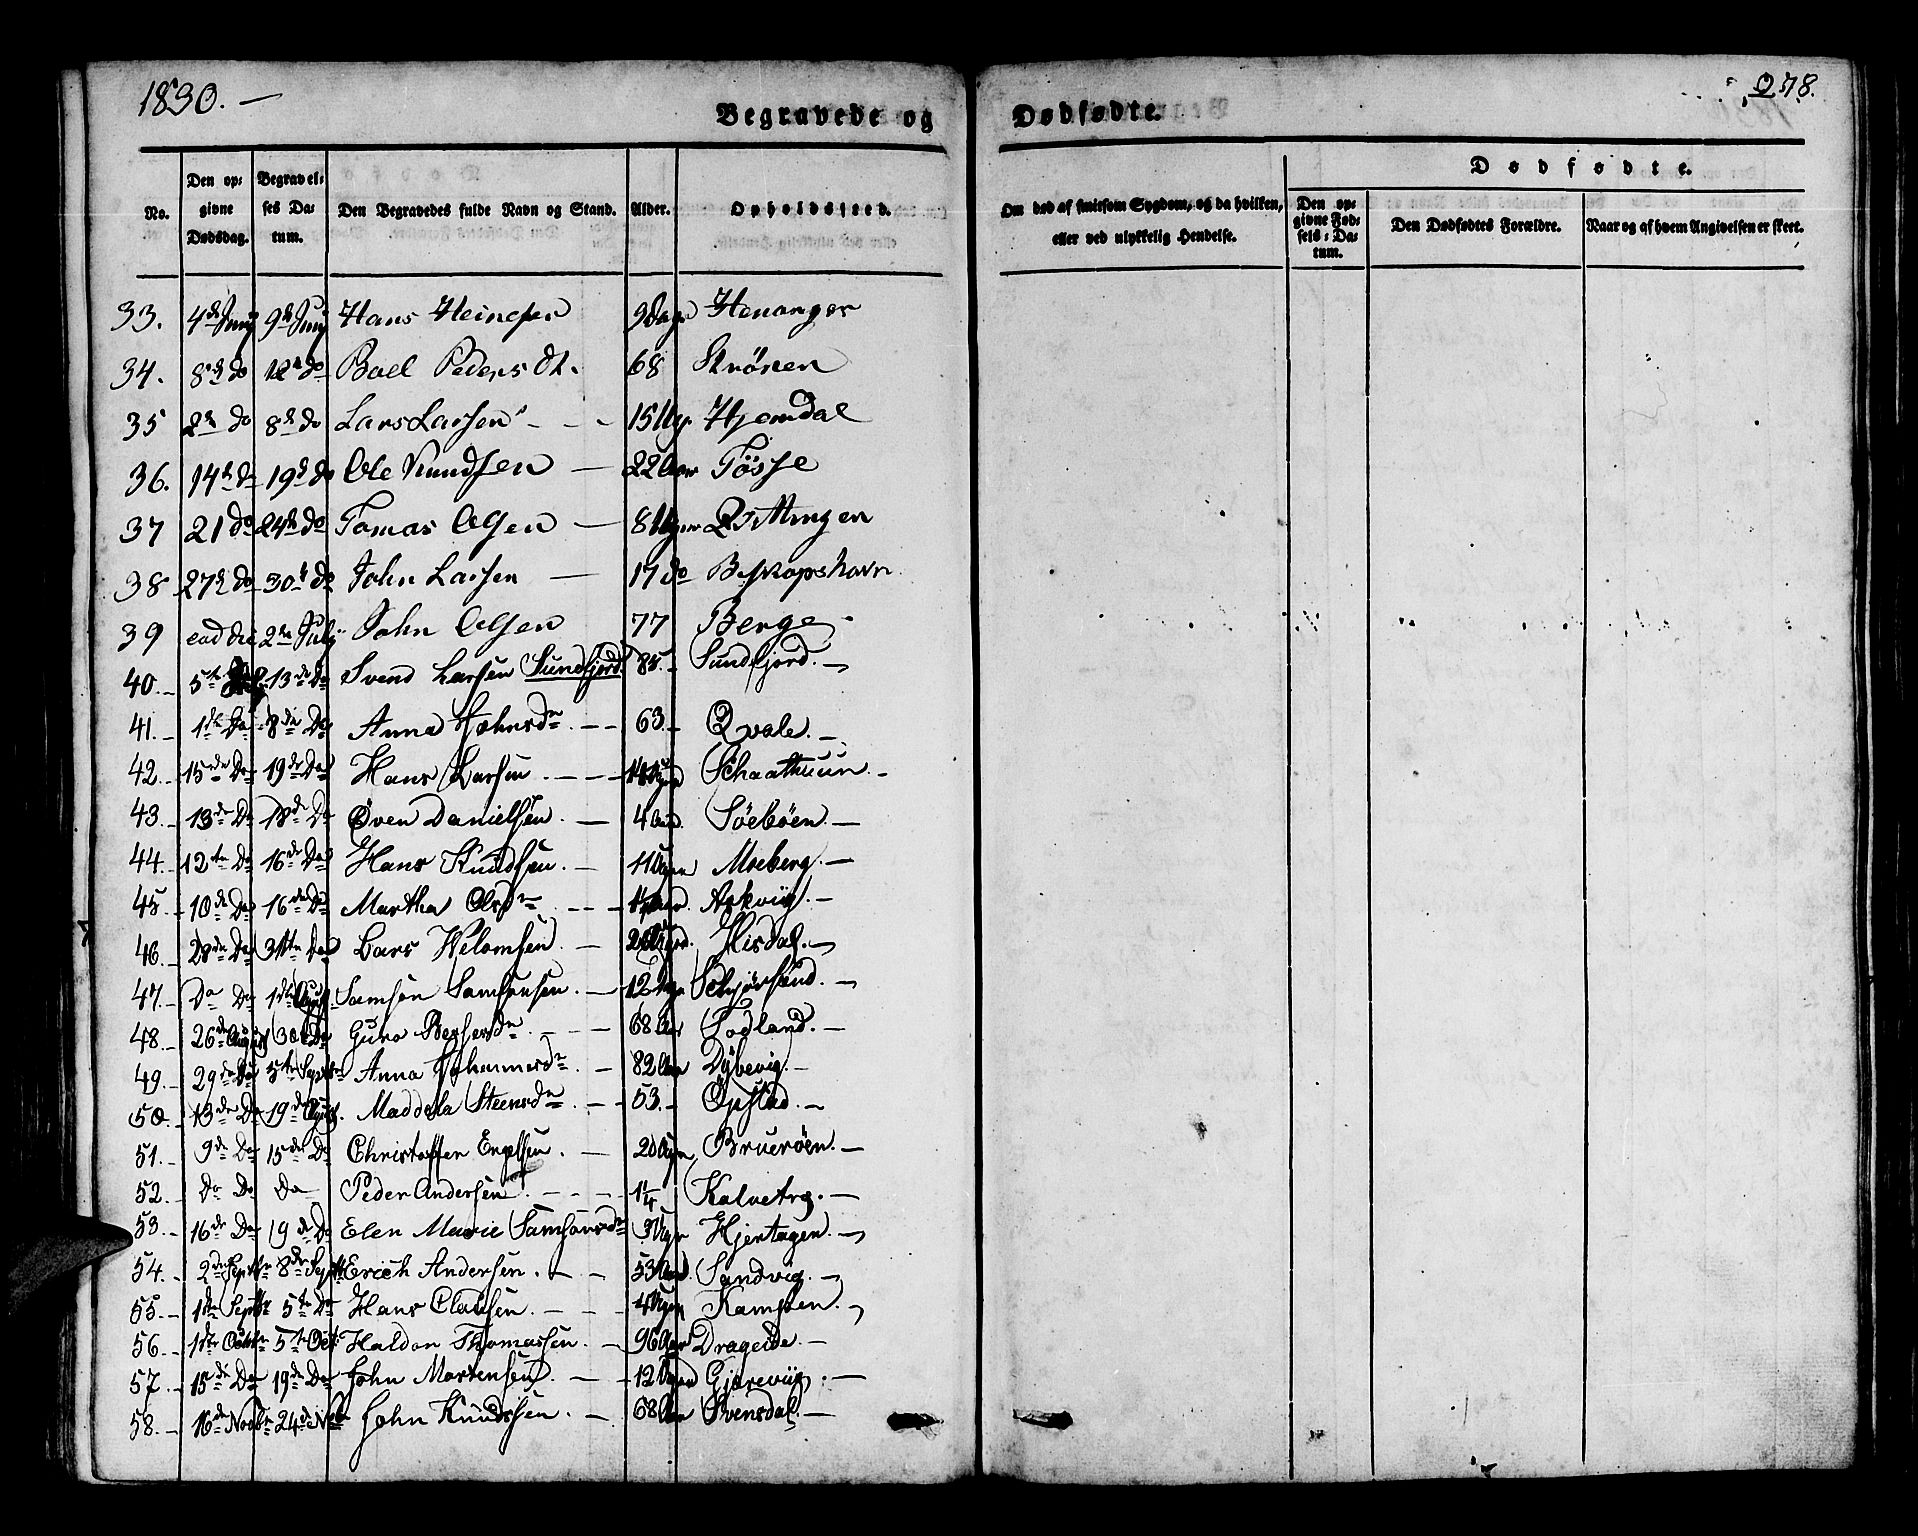 1830. —
278.
Begravede og Dødfødte.
No.
Den opgivne Dødsdag.
Begravelses Datum.
Den Begravedes fulde Navn og Stand.
Alder.
Opholdssted.
Om død af smitsom Sygdom, og da hvilken, eller ved ulykkelig Hendelse.
Dødfødte.
Den opgivne Fødsels-Datum.
Den Dødfødtes Forældre.
Naar og af hvem Angivelsen er skeet.
33. 4de Juny 9de Juny Hans Heinesen 9 Dage Henanger
34. 8de do 12te do Boel Peders dt. 68 Strönen
35 2de do 8de do Lars Larsen - - - 15 Ug. Hjemdal
36. 14de do 19de do Ole Knudsen — 22 Aar Tösse
37 21 do 24de do Tomas Olsen — 8 Uger
38 27de do 30te do John Larsen — 17 do Biskopshavn
39 eod die 2den July John Olsen 77 Berge
40. 5te 13de Do Svend Larsen Sundfjord 85. Sundfjord. —
41. 1ste Do 8de Do Anna 63. Qvale. —
42. 15de Do 19de Do Hans Larsen. Schaathuun. -
43. 13de Do 18de Do Øven Danielsen. — 4 Aar. Söeböen. —
44. 12te Do 16de Do Hans Knudsen. — 11 Ugr Moberg. —
45. 10de Do 16de Do Martha Olsdr Askviig. —
46. 28de Do 31te Do Lars — Hisdal. —
47. Do Do 1ste August. Samson Samsonsen. — 12 Schjörsund. —
48. 26de August 30te Do Guro 68 Aar Sodland. —
49. 29de Do 5te Septbr Anna Johannesdr. — 82 Aar Dybevig. —
50. 13de Do 19de August. Maddela Steensdr. 53. — Opstad. —
51. 9de Do 15de Do Christoffer Engelsen. — 20 Ugr Brueröen. —
52. Do Do Do Peder Andersen. 1 1/4 Kalvetrg. —
53. 16de Do 19de Do Elen Marie Samsonsdr Ugr Hjertagen. —
54. 2den Septbr 8de Septbr Erich Andersen. 53 Aar. Sandvig. —
55. 1ste Septbr 5te Do Hans Clausen. 4 Uger Kampen.
56. 1ste Octbr 5te Oct: Haldon Thomassen. — 96 Aar Drageide. —
57. 15de Do 19de Do John Mortensen. — 12 Gjerevig. —
58. 16de Novbr 24de Nvbr John Knudsen. — 68 Aar Svensdal. —